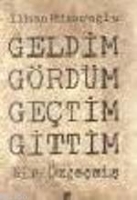 İlhan Mimaroğlu
GELDİM
GÖRDÜM
GEÇTİM
GİTTİM
Bir Özgeçmiş